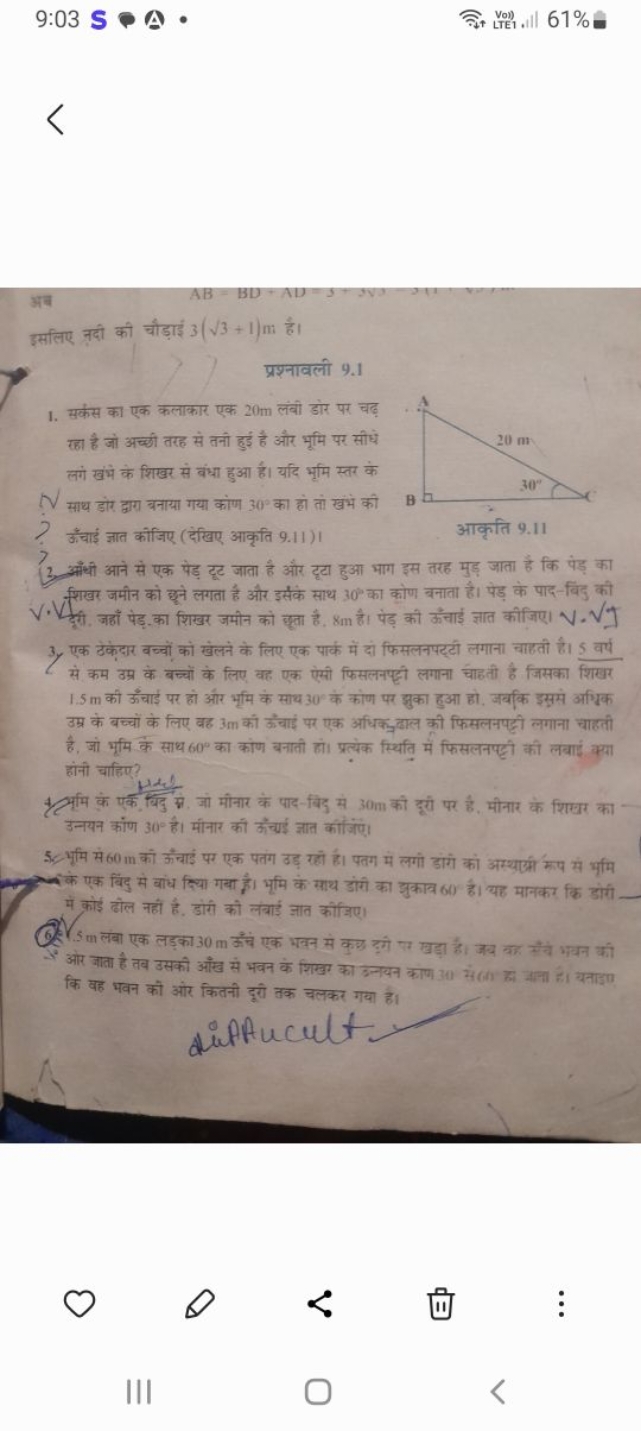 9:03 S
Vo)) LTE1 61%
अब AB = BD + AD
इसलिए नदी की चौड़ाई 3(√3 + 1)m है।
प्रश्नावली 9.1
1. सर्कस का एक कलाकार एक 20m लंबी डोर पर चढ़
रहा है जो अच्छी तरह से तनी हुई है और भूमि पर सीधे
लगे खंभे के शिखर से बंधा हुआ है। यदि भूमि स्तर के
साथ डोर द्वारा बनाया गया कोण 30° का हो तो खंभे की
ऊँचाई ज्ञात कीजिए (देखिए आकृति 9.11)।
A
20 m
30°
B
C
आकृति 9.11
2. आँधी आने से एक पेड़ टूट जाता है और टूटा हुआ भाग इस तरह मुड़ जाता है कि पेड़ का
शिखर जमीन को छूने लगता है और इसके साथ 30° का कोण बनाता है। पेड़ के पाद-बिंदु की
दूरी, जहाँ पेड़ का शिखर जमीन को छूता है, 8m है। पेड़ की ऊँचाई ज्ञात कीजिए।
3. एक ठेकेदार बच्चों को खेलने के लिए एक पार्क में दो फिसलनपट्टी लगाना चाहती है। 5 वर्ष
से कम उम्र के बच्चों के लिए वह एक ऐसी फिसलनपट्टी लगाना चाहती है जिसका शिखर
1.5 m की ऊँचाई पर हो और भूमि के साथ 30° के कोण पर झुका हुआ हो, जबकि इससे अधिक
उम्र के बच्चों के लिए वह 3m की ऊँचाई पर एक अधिक ढाल की फिसलनपट्टी लगाना चाहती
है, जो भूमि के साथ 60° का कोण बनाती हो। प्रत्येक स्थिति में फिसलनपट्टी की लंबाई क्या
होनी चाहिए?
4. भूमि के एक बिंदु से, जो मीनार के पाद-बिंदु से 30m की दूरी पर है, मीनार के शिखर का
उन्नयन कोण 30° है। मीनार की ऊँचाई ज्ञात कीजिए।
5. भूमि से 60 m की ऊँचाई पर एक पतंग उड़ रही है। पतंग में लगी डोरी को अस्थायी रूप से भूमि
के एक बिंदु से बांध दिया गया है। भूमि के साथ डोरी का झुकाव 60° है। यह मानकर कि डोरी
में कोई ढील नहीं है, डोरी की लंबाई ज्ञात कीजिए।
6. 1.5 m लंबा एक लड़का 30 m ऊँचे एक भवन से कुछ दूरी पर खड़ा है। जब वह ऊँचे भवन की
ओर जाता है तब उसकी आँख से भवन के शिखर का उन्नयन कोण 30° से 60° हो जाता है। बताइए
कि वह भवन की ओर कितनी दूरी तक चलकर गया है।